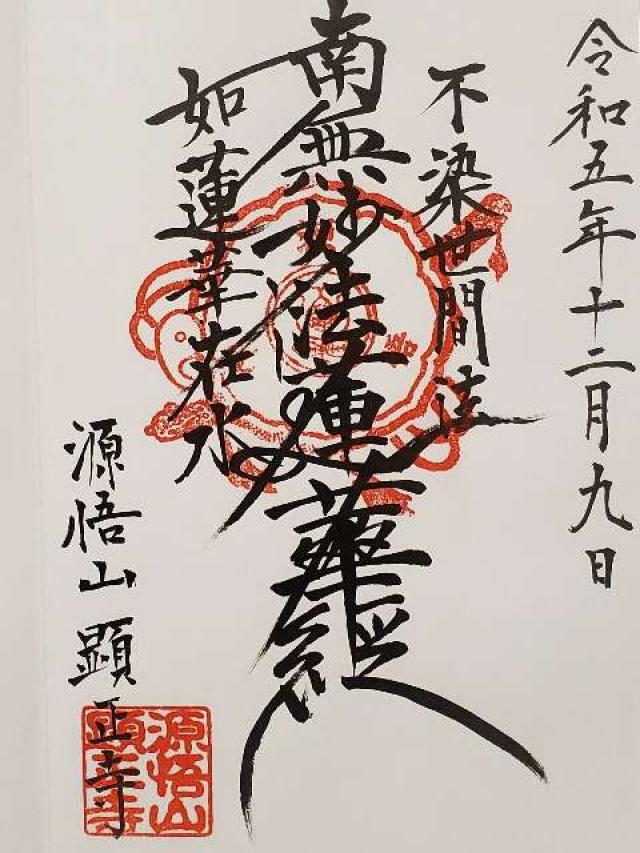 令和五年十二月九日
不染世間法
南無妙法蓮華経
如蓮華在水
源悟山 顕正寺
源悟山
顕正寺